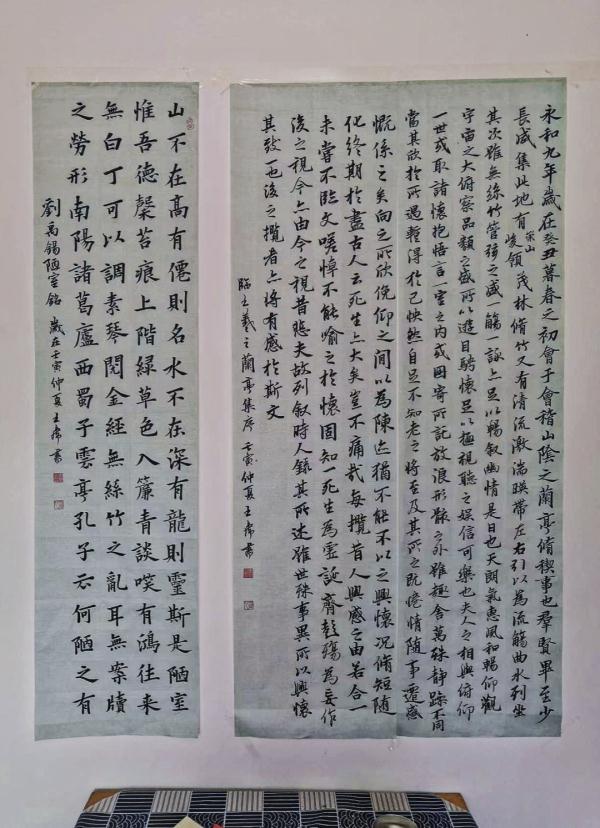 永和九年歲在癸丑暮春之初會于會稽山陰之蘭亭脩稧事也羣賢畢至少
長咸集此地有崇山峻領茂林脩竹又有清流激湍暎帶左右引以為流觴曲水列坐
其次雖無絲竹管弦之盛一觴一詠亦足以暢叙幽情是日也天朗氣惠風和暢仰觀
宇宙之大俯察品類之盛所以遊目騁懷足以極視聽之娱信可樂也夫人之相與俯仰
一世或取諸懷抱悟言一室之内或因寄所託放浪形骸之外雖趣舍萬殊静躁不同
當其欣於所遇暫得於己怏然自足不知老之將至及其所之既惓情随事遷感
慨係之矣向之所欣俛仰之間以為陳迹猶不能不以之興懷况脩短随
化終期於盡古人云死生亦大矣豈不痛哉每攬昔人興感之由若合一
未嘗不臨文嗟悼不能喻之於懷固知一死生為虚誕齊彭殤為妄作
後之視今亦由今之視昔悲夫故列叙時人録其所述雖世殊事異所以興懷
其致一也後之攬者亦將有感於斯文
臨王羲之蘭亭集序 壬寅仲夏王書
山不在高有僊則名水不在深有龍則靈斯是陋室
惟吾德馨苔痕上階緑草色入簾青談笑有鴻往来
無白丁可以調素琴閱金經無絲竹之亂耳無案牘
之勞形南陽諸葛廬西蜀子雲亭孔子云何陋之有
劉禹錫陋室銘 歲在壬寅仲夏王書